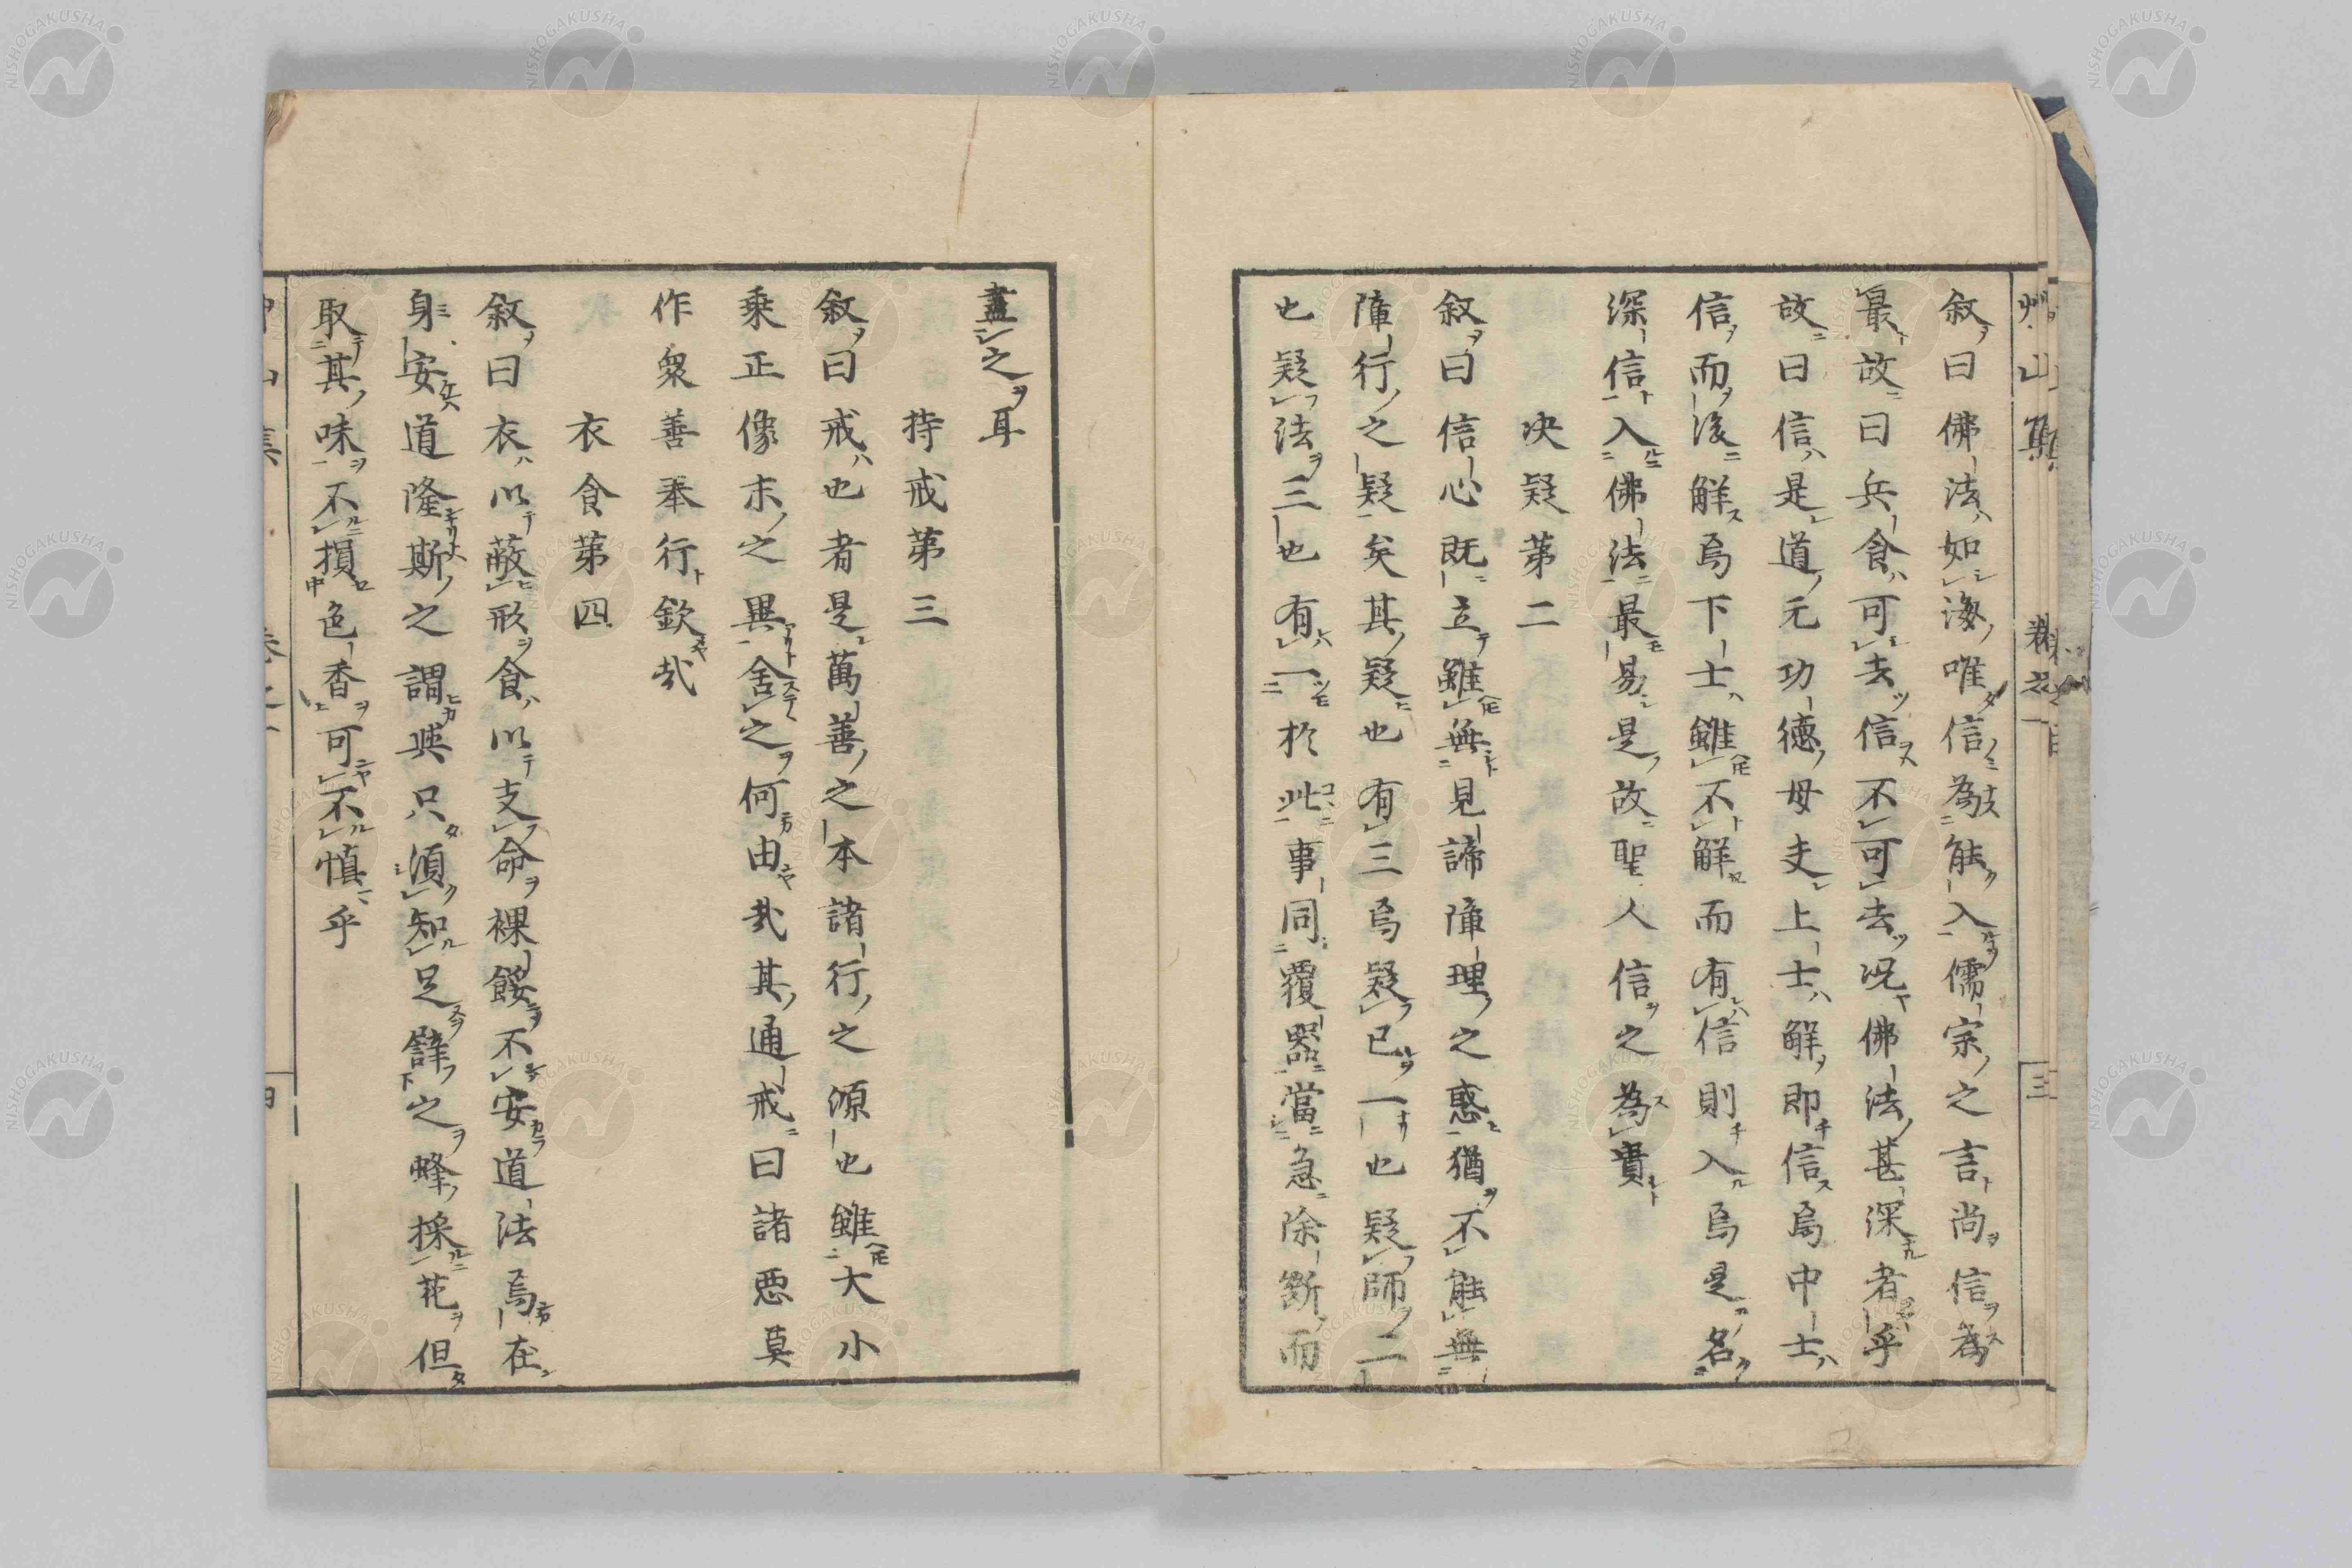 敘曰佛法如海唯信為能入儒宗之言尚信為
最故曰兵食可去信不可去况佛法甚深者乎
故曰信是道元功德母夫上士解即信焉中士
信而後解焉下士雖不解而有信則入焉是名
深信入佛法最易是故聖人信之為貴
决疑第二
敘曰信心既立雖無見諦障理之惑猶不能無
障行之疑矣其疑也有三焉疑已一也疑師二
也疑法三也有一於此事同覆器當急除斷而
盡之耳
持戒第三
敘曰戒也者是萬善之本諸行之源也雖大小
乗正像末之異舍之何由哉其通戒曰諸惡莫
作衆善奉行欽哉
衣食第四
敘曰衣以蔽形食以支命裸餒不安道法焉在
身安道隆斯之謂與只須知足辟之蜂採花但
取其味不損色香可不慎乎
NISHOGAKUSHA